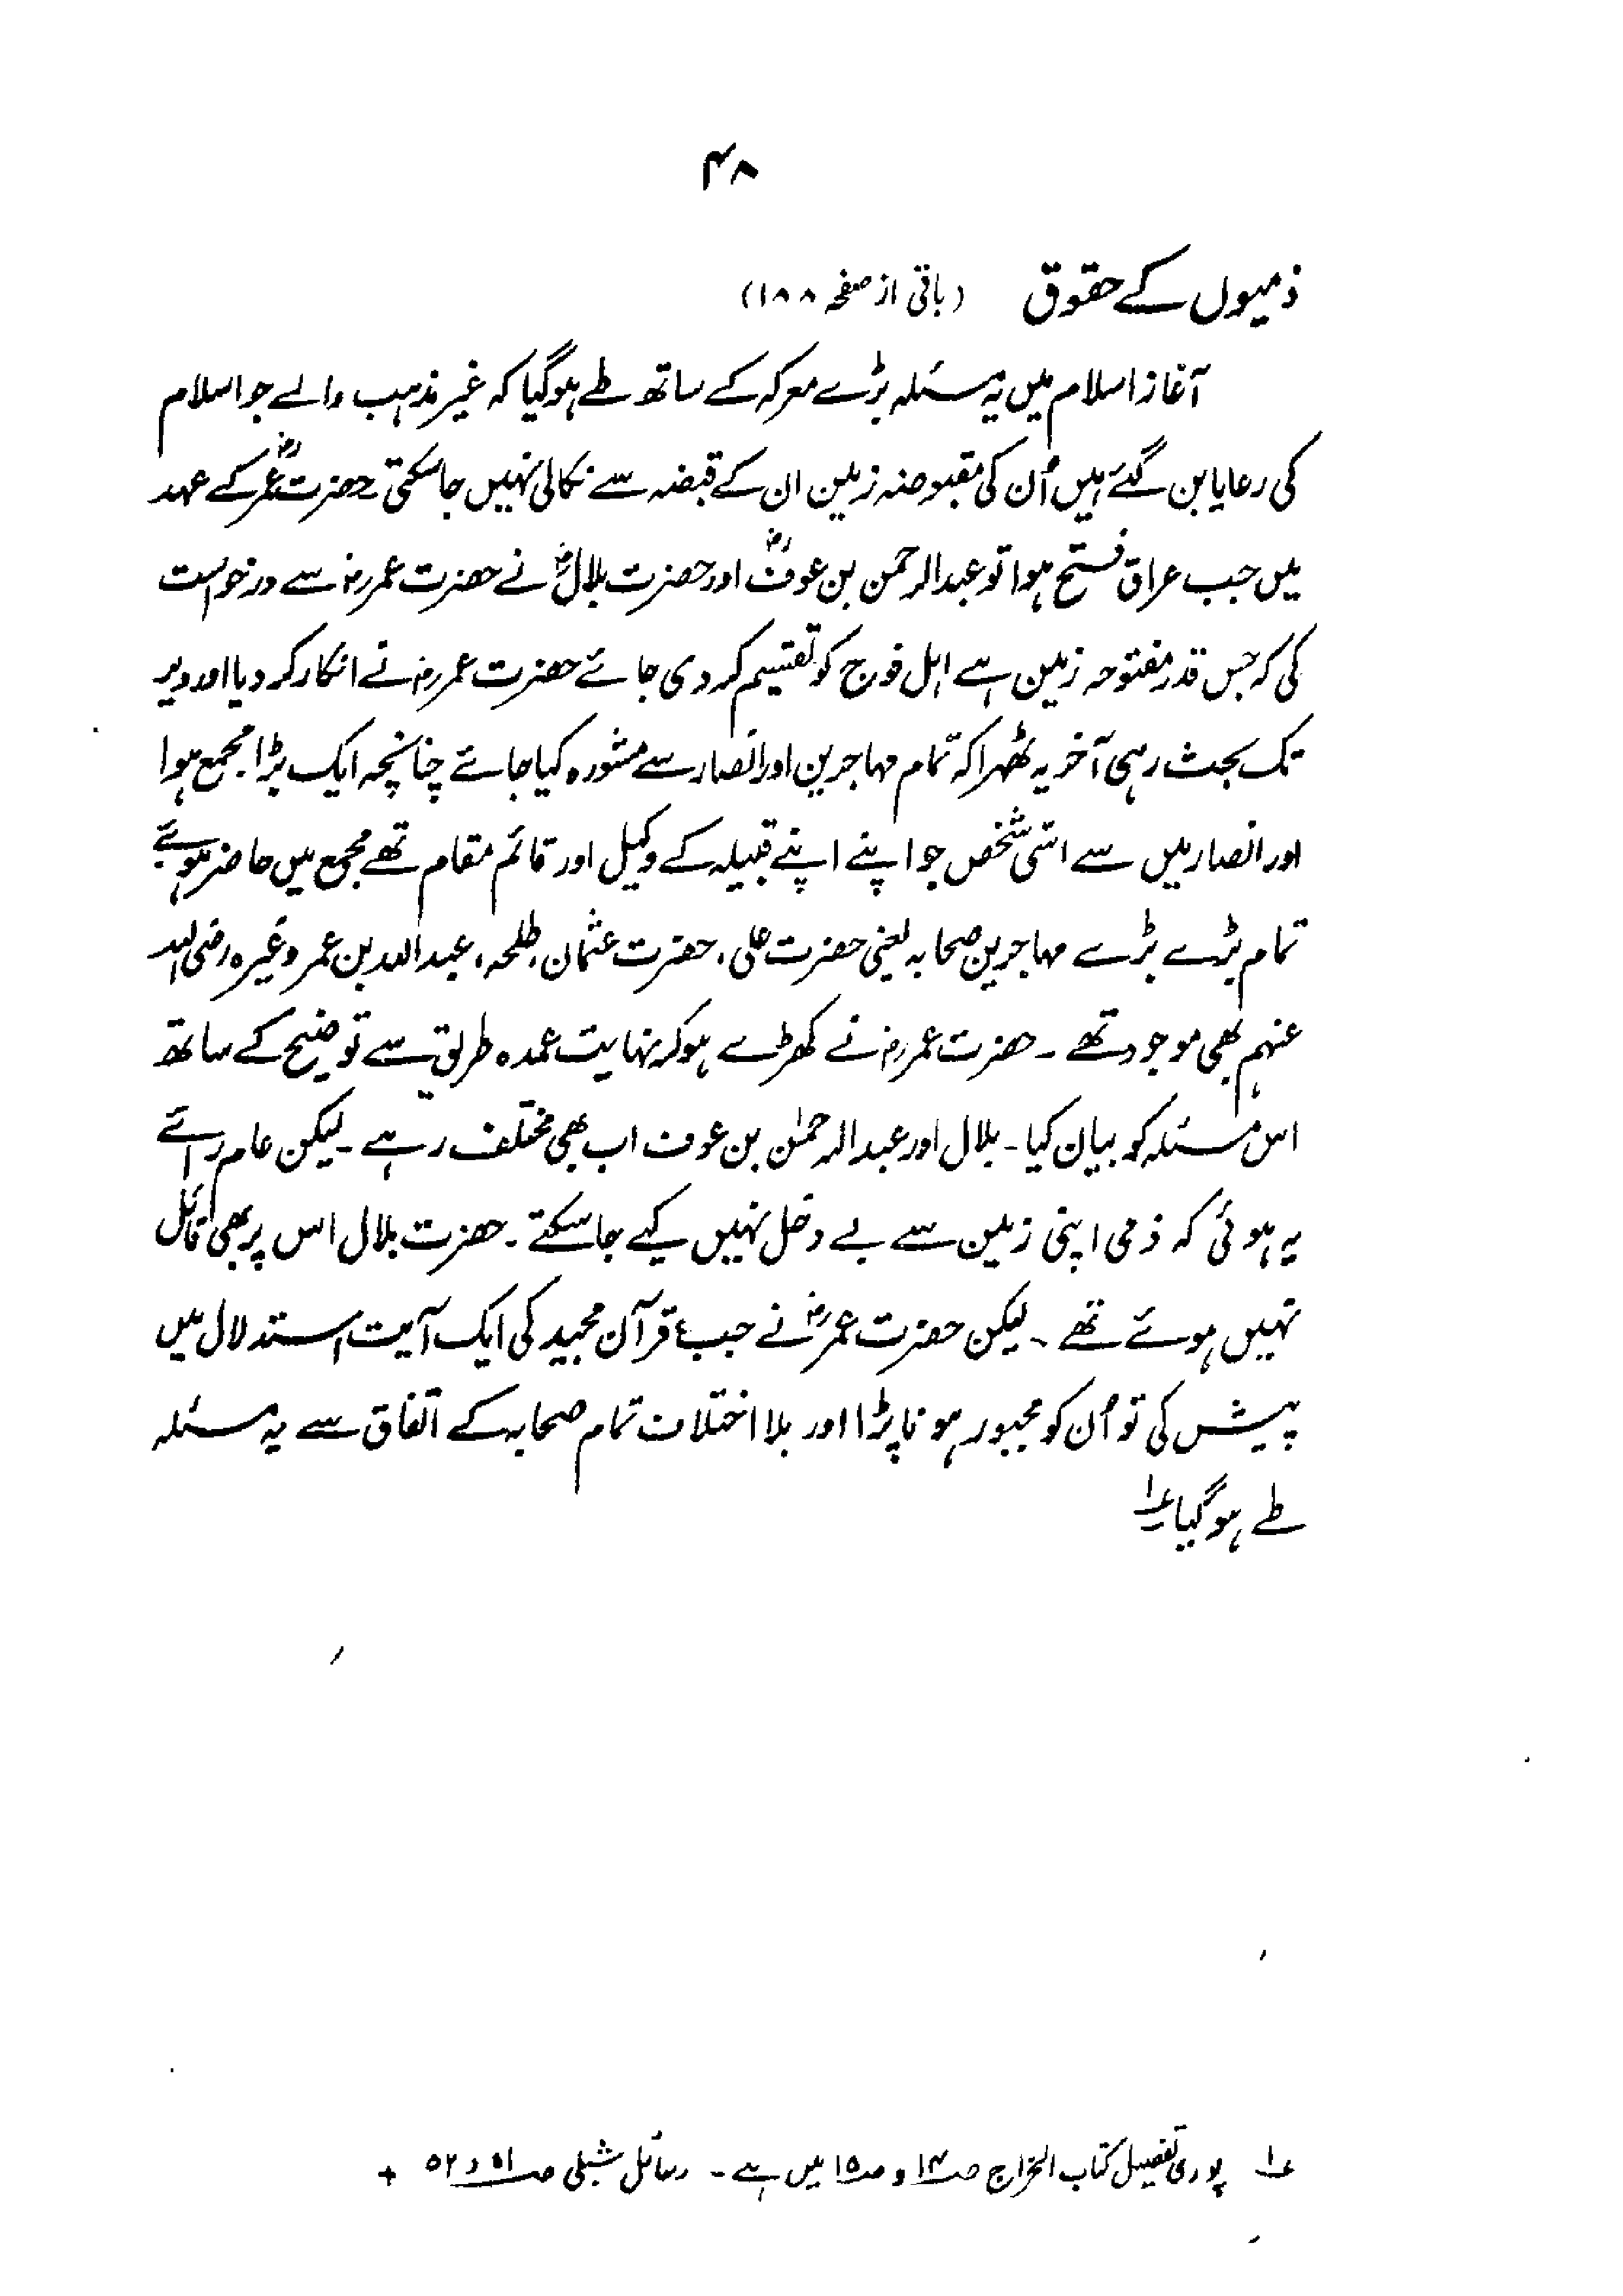 ۴۸
ذمیوں کے حقوق (باقی از صفحہ ۱۸۸)
آغاز اسلام میں یہ مسئلہ بڑے معرکہ کے ساتھ طے ہوگیا کہ غیر مذہب والے جو اسلام
کی رعایا بن گئے ہیں اُن کی مقبوضہ زمین ان کے قبضہ سے نکالی نہیں جاسکتی حضرت عمرؓ کے عہد
میں جب عراق فتح ہوا تو عبدالرحمن بن عوفؓ اور حضرت بلالؓ نے حضرت عمررضؓ سے درخواست
کی کہ جس قدر مفتوحہ زمین ہے اہل فوج کو تقسیم کر دی جائے حضرت عمررضؓ نے انکار کر دیا اور دیر
تک بحث رہی آخر یہ ٹھہرا کہ تمام مہاجرین اور انصار سے مشورہ کیا جائے چنانچہ ایک بڑا مجمع ہوا
اور انصار میں سے اسّی شخص جو اپنے اپنے قبیلہ کے وکیل اور قائم مقام تھے مجمع میں حاضر ہوئے
تمام بڑے بڑے مہاجرین صحابہ یعنی حضرت علی، حضرت عثمان، طلحہ، عبداللہ بن عمر وغیرہ رضی اللہ
عنہم بھی موجود تھے ۔ حضرت عمررضؓ نے کھڑے ہوکر نہایت عمدہ طریق سے توضیح کے ساتھ
اس مسئلہ کو بیان کیا ۔ بلال اور عبدالرحمٰن بن عوف اب بھی مختلف رہے ۔ لیکن عام رائے
یہ ہوئی کہ ذمی اپنی زمین سے بے دخل نہیں کیے جاسکتے ۔ حضرت بلال اس پر بھی قائل
نہیں ہوئے تھے ۔ لیکن حضرت عمرؓ نے جب قرآن مجید کی ایک آیت استدلال میں
پیش کی تو اُن کو مجبور ہونا پڑا اور بلا اختلاف تمام صحابہ کے اتفاق سے یہ مسئلہ
طے ہوگیا ؏۱
؏۱ پوری تفصیل کتاب الخراج صـ۱۴ و صـ۱۵ میں ہے ۔ رسائل شبلی صـ۵۱ و ۵۲ +